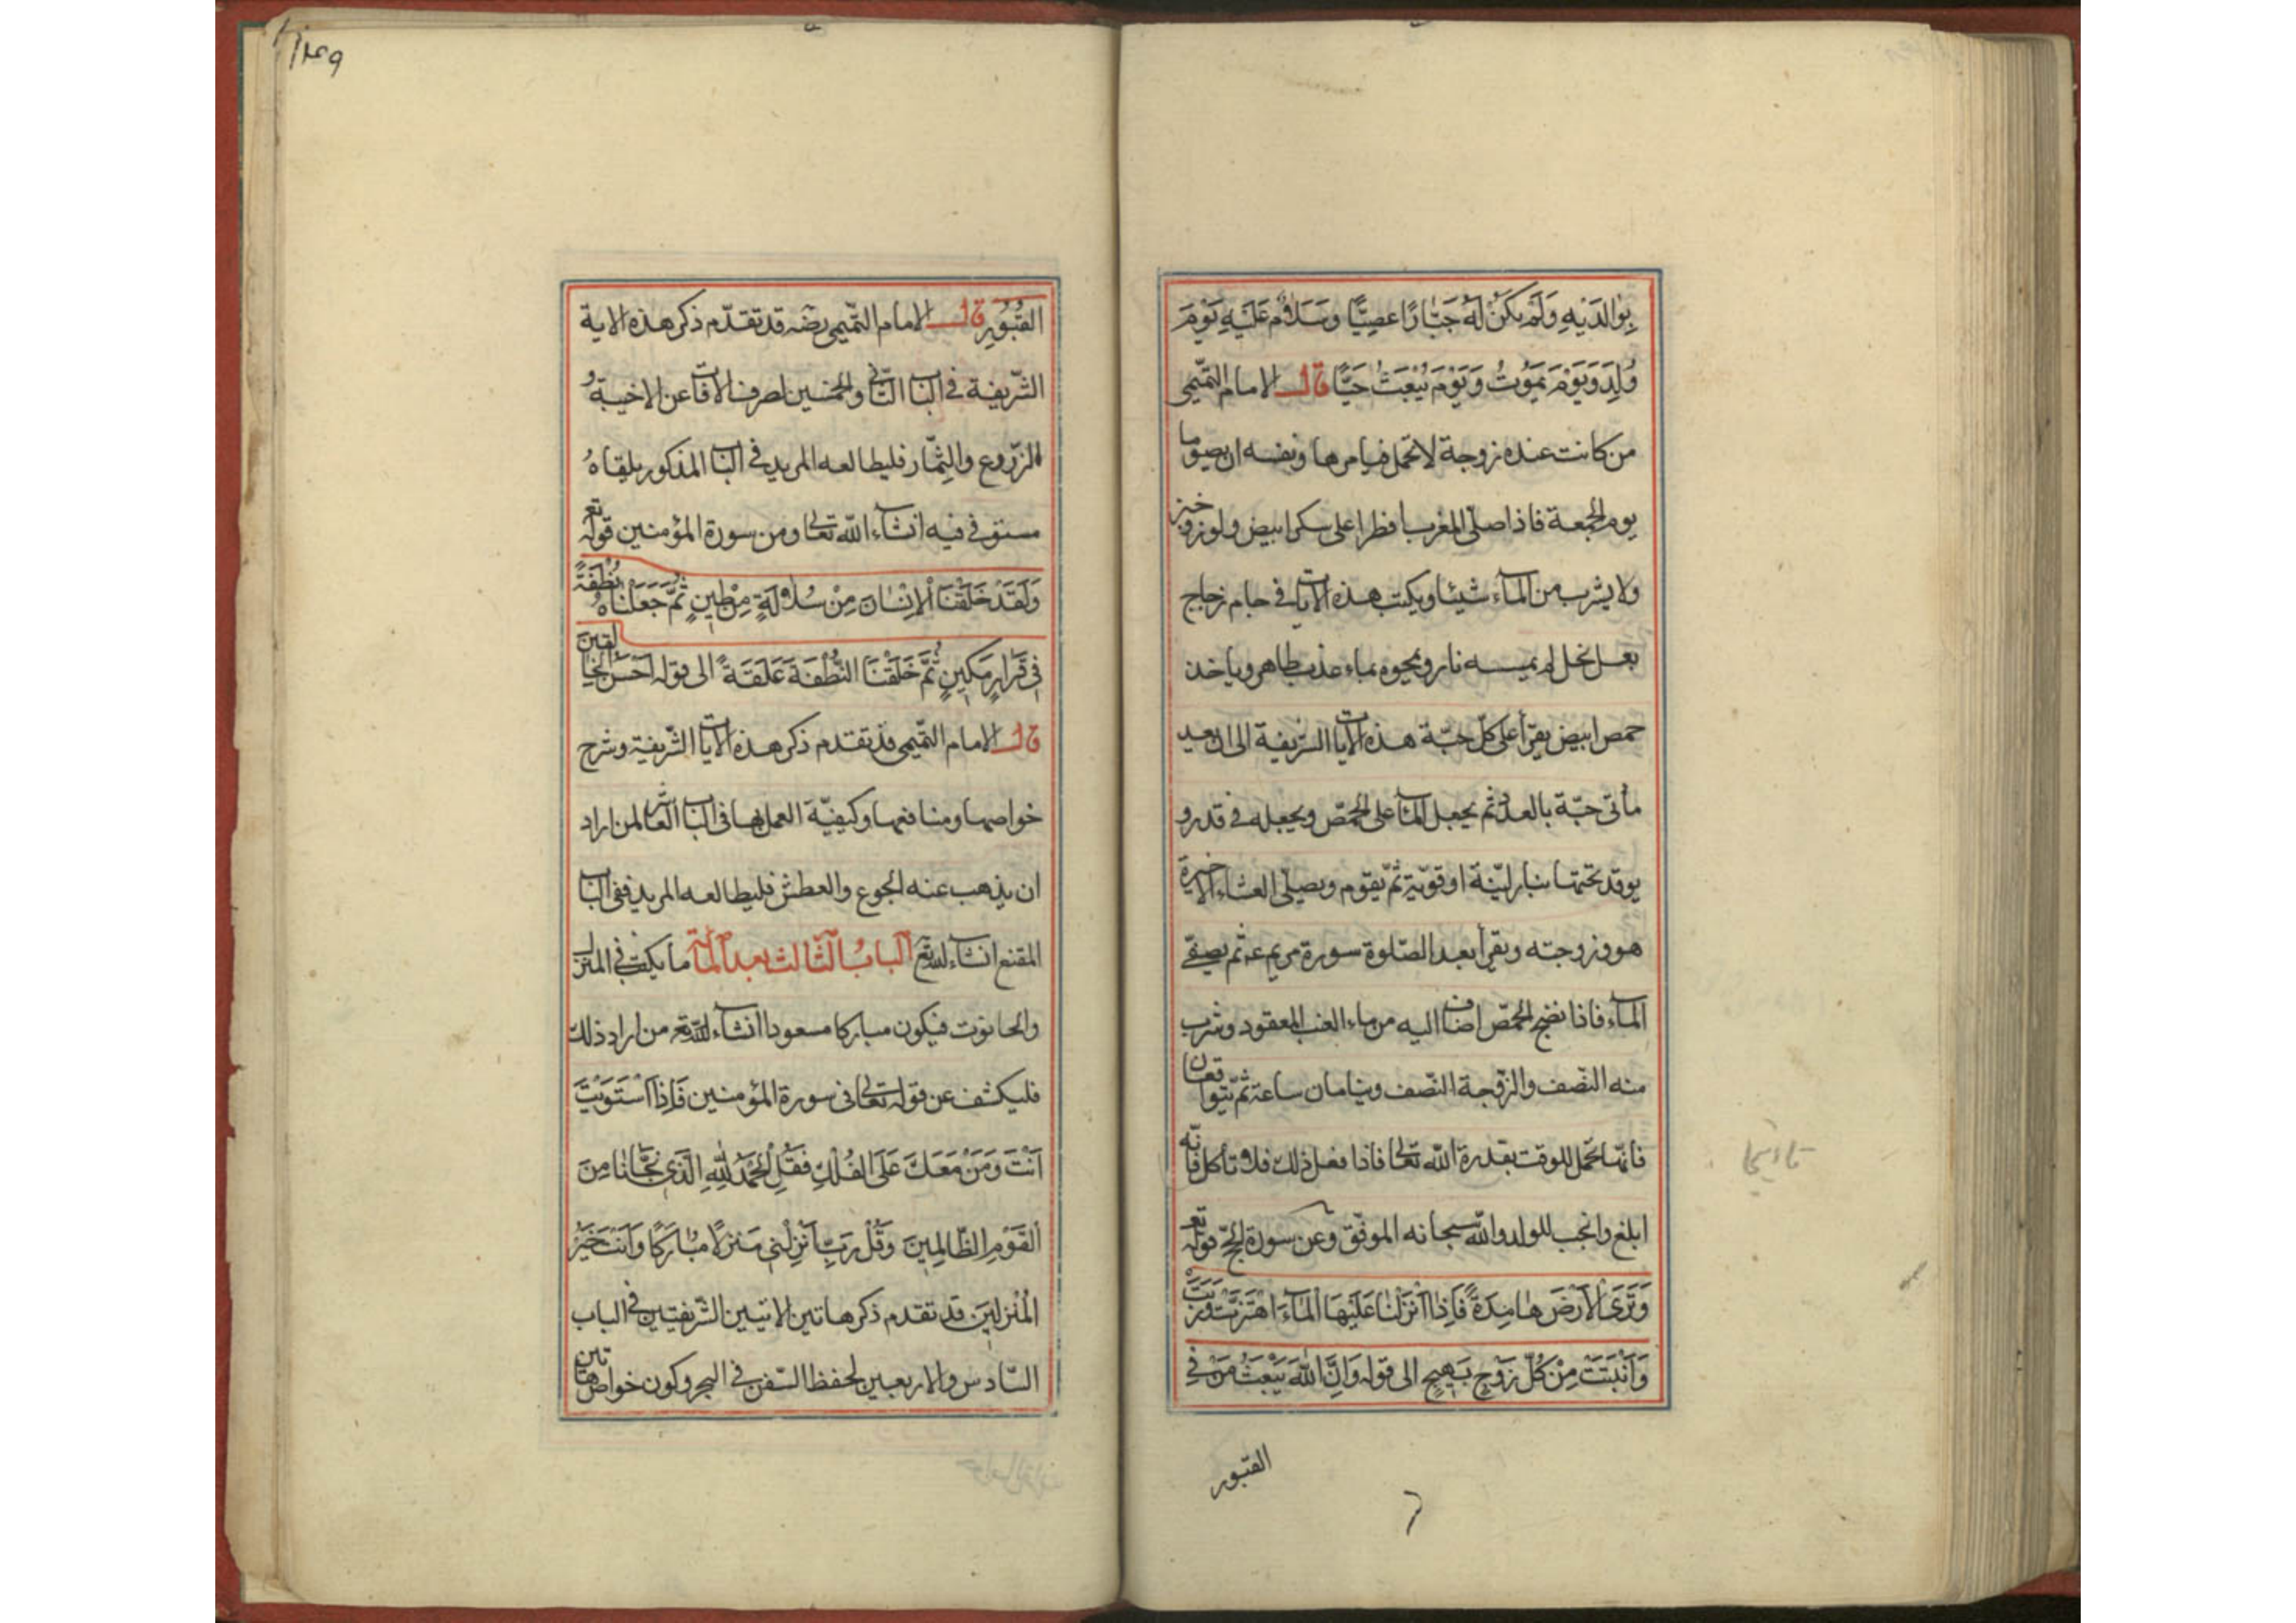 بِوَالِدَيْهِ وَلَمْ يَكُنْ لَهُ جَبَّارًا عَصِيًّا وَسَلَامٌ عَلَيْهِ يَوْمَ
وُلِدَ وَيَوْمَ يَمُوتُ وَيَوْمَ يُبْعَثُ حَيًّا قال الامام التّميمى
من كانت عنده زوجة لا تحمل فيامرها ونفسه ان يصوما
يوم الجمعة فاذا صلّى المغرب افطرا على سكر ابيض ولوز وخبز
ولا يشرب من الماء شيئا ويكتب هذه الايات فى جام زجاج
بعسل نحل لم يمسه نار ويمحوه بماء عذب طاهر وياخذ
حمص ابيض يقرأ على كلّ حبّة هذه الايات الشريفة الى ان يعيد
مأتى حبّة بالعدد ثم يجعل الماء على الحمّص ويجعله فى قدر و
يوقد تحتها بنار ليّنة او قويّة ثمّ يقوم ويصلّى العشاء الاخيرة
هو وزوجته ويقرأ بعد الصّلوة سورة مريم ع م ثم يصفى
الماء فاذا نضج الحمّص اضاف اليه من ماء العنب المعقود وشرب
منه النّصف والزّوجة النّصف وينامان ساعة ثمّ يتواقعان
فانّها تحمل للوقت بقدرة الله تعالى فاذا فعل ذلك فلا تأكل فانّه
ابلغ وانجب للولد والله سبحانه الموفّق وعن سورة الحجّ قوله تع
وَتَرَى الْاَرْضَ هَامِدَةً فَاِذَا اَنْزَلْنَا عَلَيْهَا الْمَاءَ اهْتَزَّتْ وَرَبَتْ
وَاَنْبَتَتْ مِنْ كُلِّ زَوْجٍ بَهِيجٍ الى قوله وَاَنَّ اللهَ يَبْعَثُ مَنْ فِى
القبور
١٢٤٩
القُبُورِ قال الامام التّميمى رضه قد تقدّم ذكر هذه الاية
الشّريفة فى الباب الثانى والخمسين لصرف الافات عن الاخبية و
الزّروع والثّمار فليطالعه المريد فى الباب المذكور يلقاه
مستوفى فيه انشاء الله تعالى ومن سورة المؤمنين قوله تع
وَلَقَدْ خَلَقْنَا الْاِنْسَانَ مِنْ سُلَالَةٍ مِنْ طِينٍ ثُمَّ جَعَلْنَاهُ نُطْفَةً
فِى قَرَارٍ مَكِينٍ ثُمَّ خَلَقْنَا النُّطْفَةَ عَلَقَةً الى قوله اَحْسَنُ الْخَالِقِينَ
قال الامام التّميمى قد تقدم ذكر هذه الايات الشّريفة وشرح
خواصها ومنافعها وكيفيّة العمل بها فى الباب العاشر لمن اراد
ان يذهب عنه الجوع والعطش فليطالعه المريد ففى الباب
المقنع انشاء الله تع الباب الثالث بعد المائة ما يكتب فى المنزل
والحانوت فيكون مباركا مسعودا انشاء الله تع من اراد ذلك
فليكشف عن قوله تعالى فى سورة المؤمنين فَاِذَا اسْتَوَيْتَ
اَنْتَ وَمَنْ مَعَكَ عَلَى الْفُلْكِ فَقُلِ الْحَمْدُ لِلّٰهِ الَّذِى نَجَّانَا مِنَ
الْقَوْمِ الظَّالِمِينَ وَقُلْ رَبِّ اَنْزِلْنِى مُنْزَلًا مُبَارَكًا وَاَنْتَ خَيْرُ
الْمُنْزِلِينَ قد تقدم ذكر هاتين الايتين الشّريفتين فى الباب
السّادس والاربعين لحفظ السّفن فى البحر وكون خواص هاتين